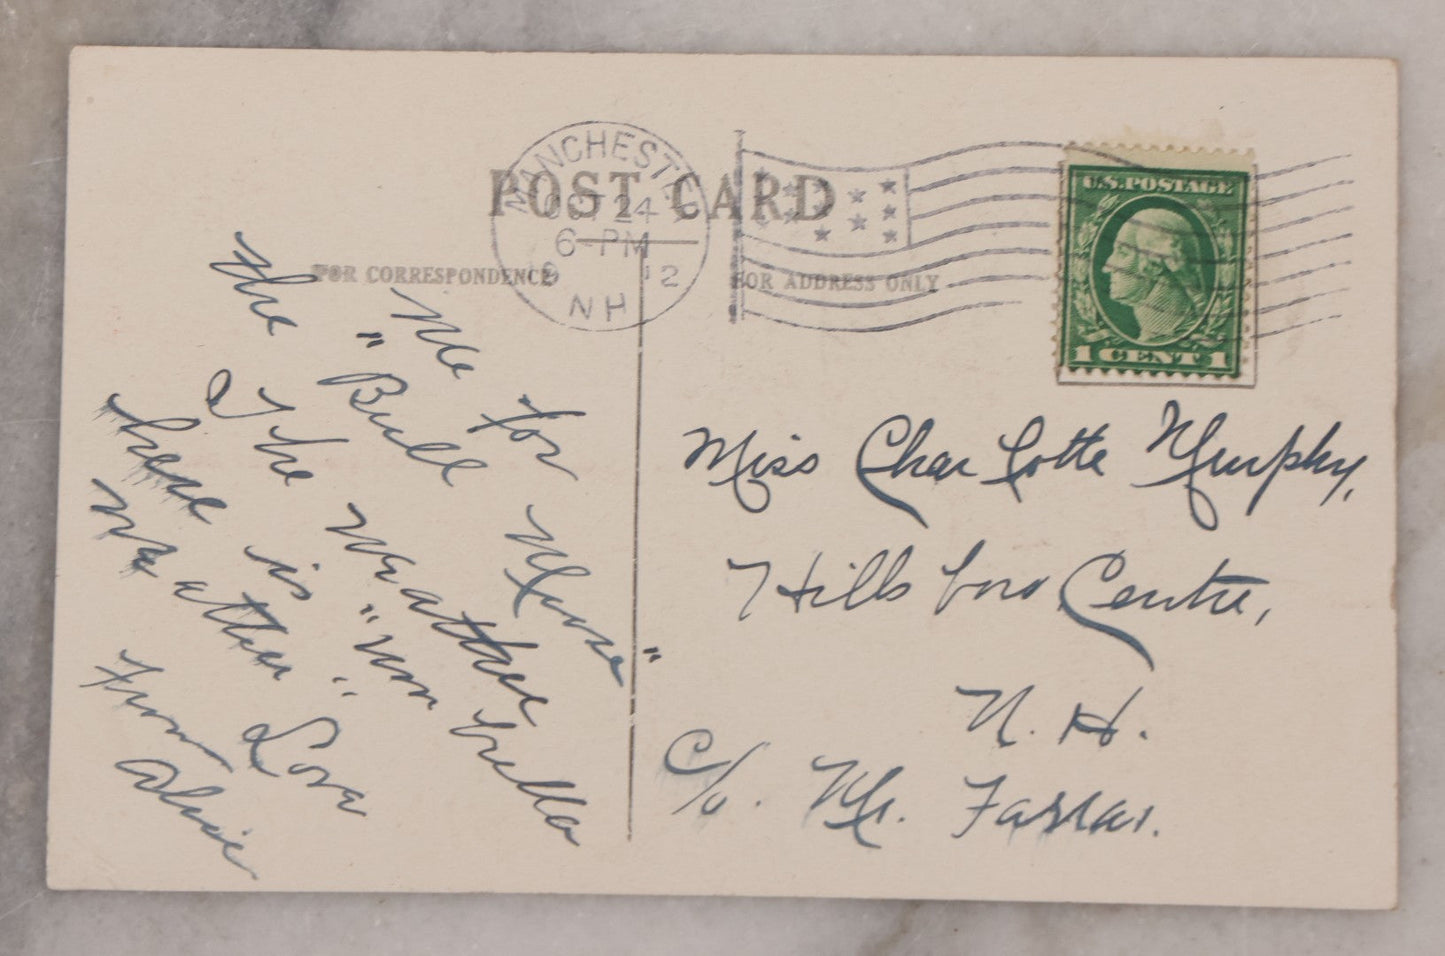 POST CARD
MANCHESTER
OCT 24
6-PM
1912
NH
U.S. POSTAGE
1 CENT 1
FOR CORRESPONDENCE
FOR ADDRESS ONLY
Me for
the "Bull Moose"
The weather
here is "umbrella
weather" Love
From
Alice
Miss Charlotte Murphy,
Hillsboro Centre,
N. H.
c/o. Mr. Farrar.